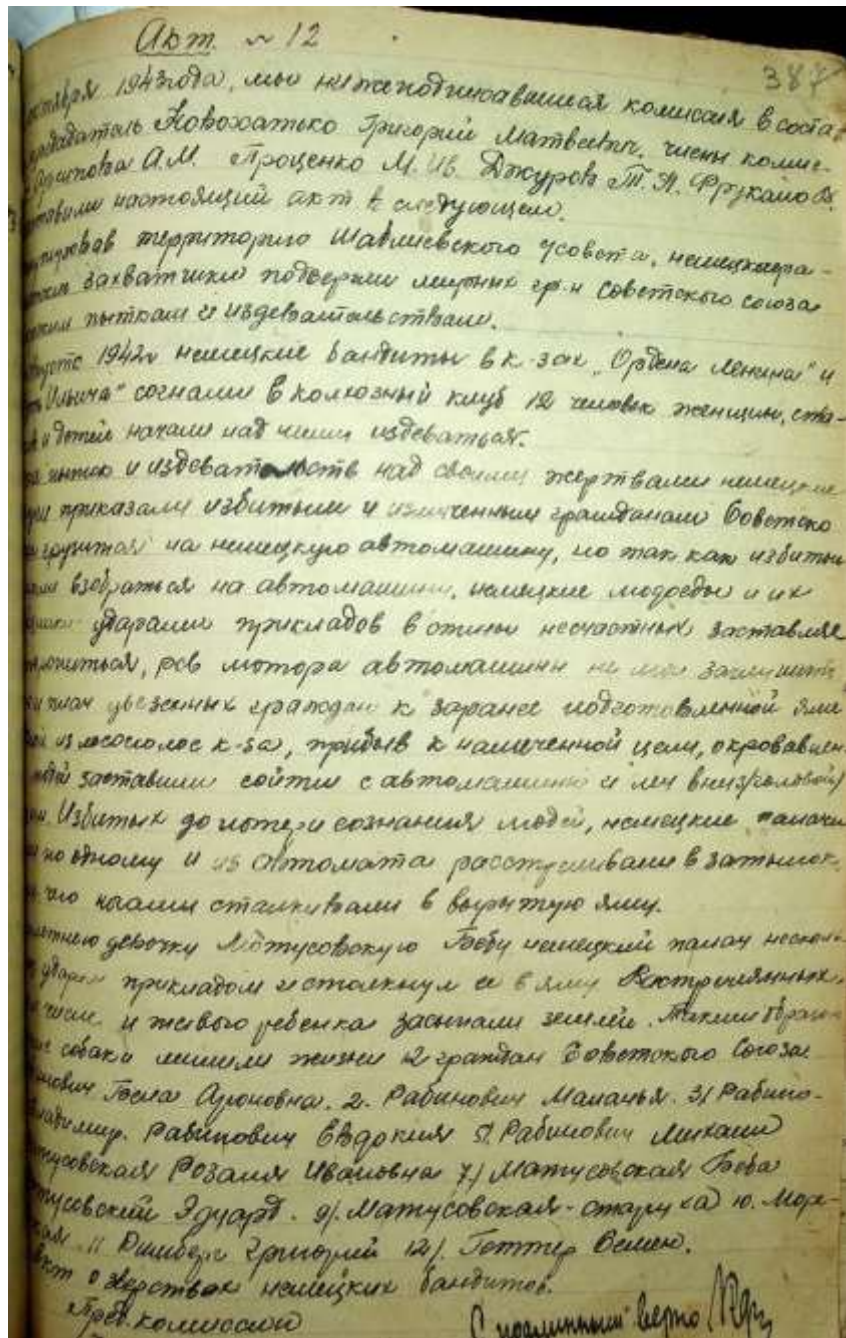 Акт № 12
387
октября 1943 года, мы нижеподписавшиеся комиссия в соста
председатель Новохатько Григорий Матвеевич, члены комис-
А.М. Проценко М. Ив. Джуров Т. Я.
ставили настоящий акт в следующем.
территорию Шаблиевского с/совета, немецко фа-
захватчики подвергли мирных гр-н Советского союза
пыткам и издевательствам.
августе 1942 г немецкие бандиты в к-зах „Ордена Ленина" и
Ильича" согнали в колхозный клуб 12 человек женщин, ста-
и детей начали над ними издеваться.
и издевательств над своими жертвами немецкие
приказали избитым и измученным гражданам Советско
грузиться на немецкую автомашину, но так как избитые
взобраться на автомашину, немецкие людоеды и их
ударами прикладов в спины несчастных заставляли
рев мотора автомашины не мог заглушить
плач увезенных граждан к заранее подготовленной яме
из лесополос к-за, прибыв к намеченной цели, окровавлен
заставили сойти с автомашины и леч вниз головой
Избитых до потери сознания людей, немецкие палачи
по одному и из автомата расстреливали в затылок,
чего ногами сталкивали в вырытую яму.
летнюю девочку Матусовскую Бебу немецкий палач несколь
ударил прикладом и столкнул её в яму Расстрелянных,
числе и живого ребенка засыпали землей. Таким образом
собаки лишили жизни 12 граждан Советского Союза
Ароновна. 2. Рабинович Маланья. 3/ Рабино-
Владимир. Рабинович Евдокия 5/ Рабинович Михаил
Матусовская Розалия Ивановна 7/ Матусовская Беба
Матусовский Эдуард. 9/. Матусовская-старуха 10. Море-
11 Григорий 12/. Геттер Семен.
акт о зверствах немецких бандитов.
Пред. комиссии
С подлинным верно